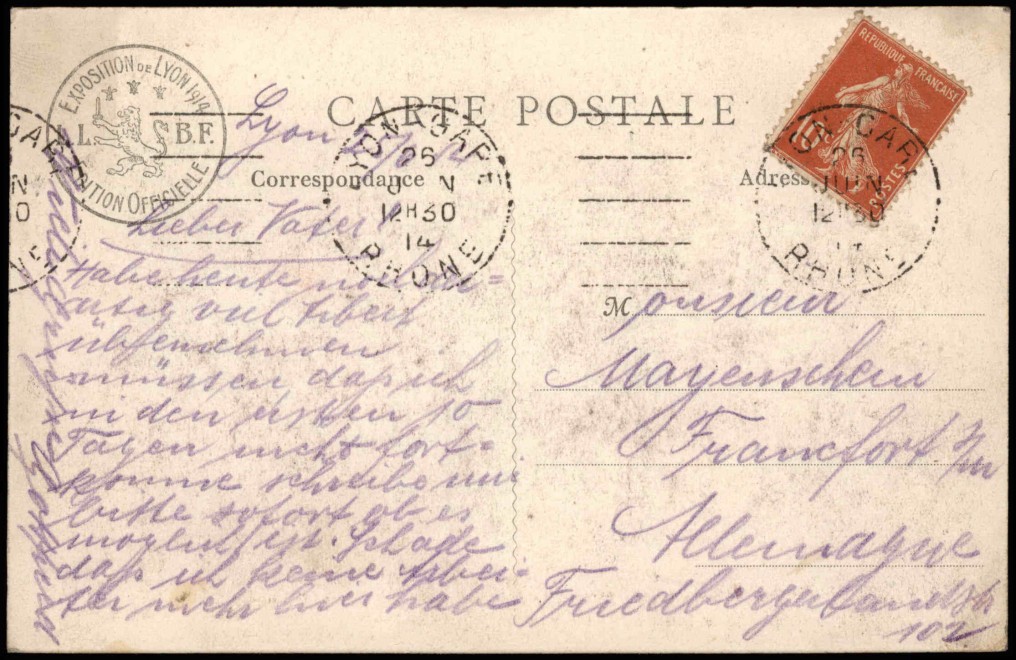 EXPOSITION DE LYON 1914
L. B.F.
EDITION OFFICIELLE
CARTE POSTALE
Correspondance
Adresse
LYON GARE
26
JUIN
12H30
14
RHONE
REPUBLIQUE FRANÇAISE
POSTES
Lyon
Lieber Vater!
Habe heute noch
viel Arbeit
übernehmen
müssen dass ich
in den ersten 10
Tagen nicht fort-
komme schreibe mir
bitte sofort ob es
ist. Schade
dass ich keine Arbei-
ter mehr hier habe
Monsieur
Mayenschein
Francfort s/m
Allemagne
Friedbergerlandstr
102